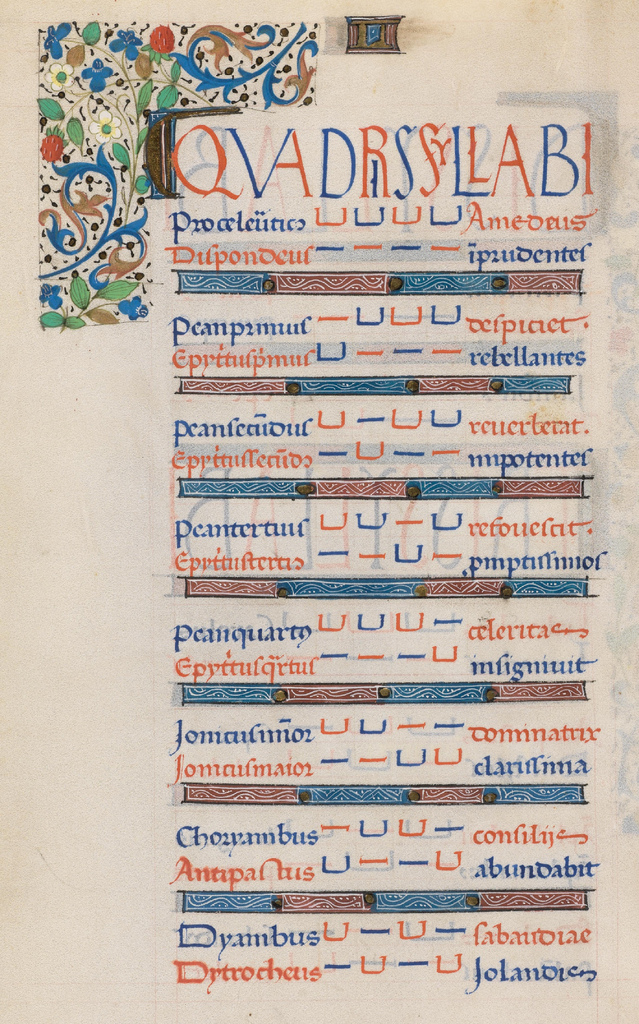 QVADRISYLLABI
Proceleūticꝰ ∪ ∪ ∪ ∪ Amedeus
Dispondeus — — — — īprudentes
Peanprimus — ∪ ∪ ∪ despiciet.
Epyt̄tusp̄mus ∪ — — — rebellantes
Peansecūdus ∪ — ∪ ∪ reuerberat.
Epyt̄tussecūdꝰ — ∪ — — impotentes
Peantertius ∪ ∪ — ∪ refouescit.
Epyt̄tustertiꝰ — — ∪ — ꝓmptissimos
Peanquartꝰ ∪ ∪ ∪ — celeritas
Epyt̄tusq̄rtus — — — ∪ insigniuit
Jonicusmīor ∪ ∪ — — dominatrix
Jonicusmaior — — ∪ ∪ clarissima
Choryambus — ∪ ∪ — consilijs
Antipastus ∪ — — ∪ abundabit
Dyambus ∪ — ∪ — sabaudiae
Dytrocheus — ∪ — ∪ Jolandis